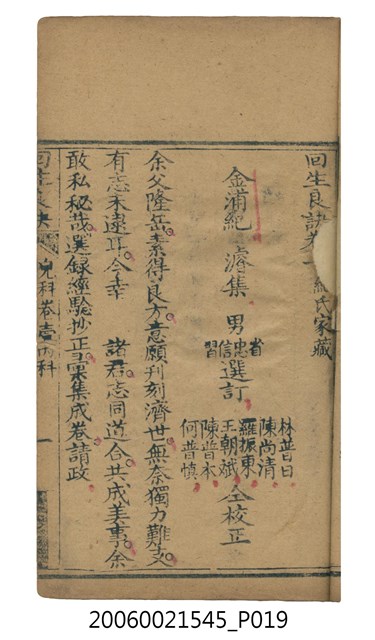 回生良訣卷一 紀氏家藏
金浦紀 濬集 男 省忠信習 選訂
林普日
陳尚清
羅振東
王朝斌
陳普本
何普慎
仝校正
余父隆岳素得良方意願刊刻濟世無奈獨力難支
有志未遠耳今幸 諸君志同道合共成美事余
敢私秘哉選録經驗抄正彙集成卷請政
回生良訣 兒科卷壹內科 一
20060021545_P019